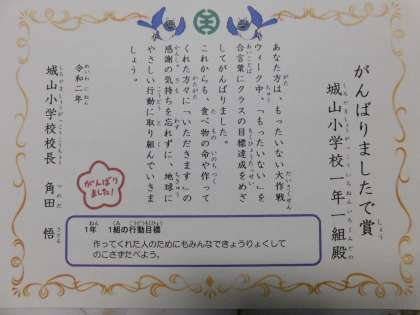 がんばりましたで賞
城山小学校一年一組殿
あなた方は、もったいない大作戦
ウィーク中、「もったいない」を
合言葉にクラスの目標達成をめざ
してがんばりました。
これからも、食べ物の命や作って
くれた方々に「いただきます」の
感謝の気持ちを忘れずに、地球に
やさしい行動に取り組んでいきま
しょう。
令和二年
城山小学校校長 角田 悟
がんばり
ました!
1年 1組の行動目標
作ってくれた人のためにもみんなできょうりょくして
のこさずたべよう。